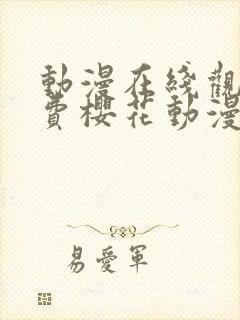 動漫在线觀
費櫻花動漫
易愛軍